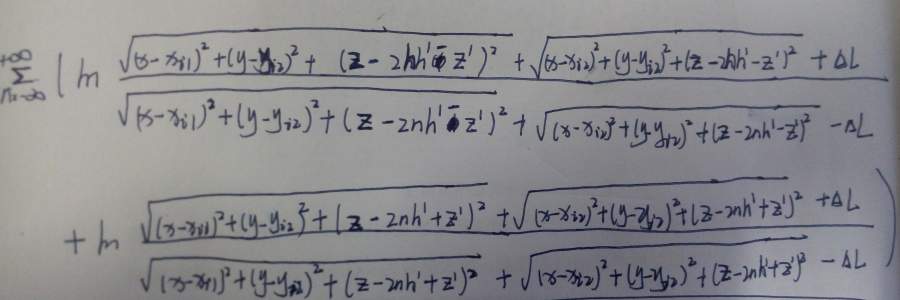 \sum_{n=-\infty}^{+\infty} \left( \ln \frac{\sqrt{(x-x_{i1})^2+(y-y_{i2})^2+(z-2nh'-z')^2}+\sqrt{(x-x_{i2})^2+(y-y_{i2})^2+(z-2nh'-z')^2}+\Delta L}{\sqrt{(x-x_{i1})^2+(y-y_{i2})^2+(z-2nh'-z')^2}+\sqrt{(x-x_{i2})^2+(y-y_{i2})^2+(z-2nh'-z')^2}-\Delta L} \right.
\left. + \ln \frac{\sqrt{(x-x_{i1})^2+(y-y_{i2})^2+(z-2nh'+z')^2}+\sqrt{(x-x_{i2})^2+(y-y_{i2})^2+(z-2nh'+z')^2}+\Delta L}{\sqrt{(x-x_{i1})^2+(y-y_{i2})^2+(z-2nh'+z')^2}+\sqrt{(x-x_{i2})^2+(y-y_{i2})^2+(z-2nh'+z')^2}-\Delta L} \right)